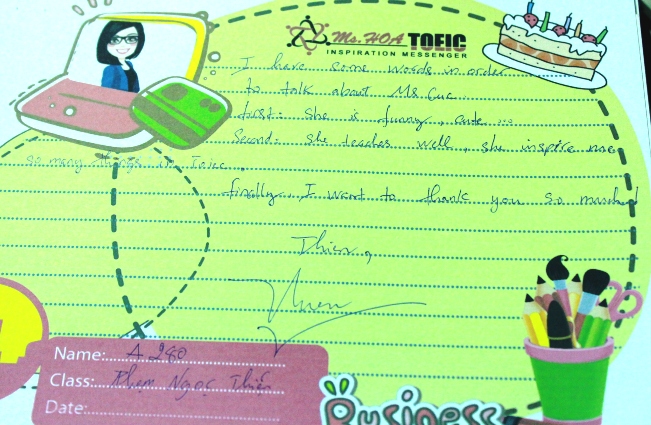 Ms.HOA TOEIC
INSPIRATION MESSENGER
I have some words in order
to talk about Ms Cuc.
first: She is funny, cute ...
Second: She teaches well, she inspire me
so many things in Toeic.
finally, I want to thank you so much
Thien,
Name: A 240
Class: Pham Ngoc Thiên
Date:
Business